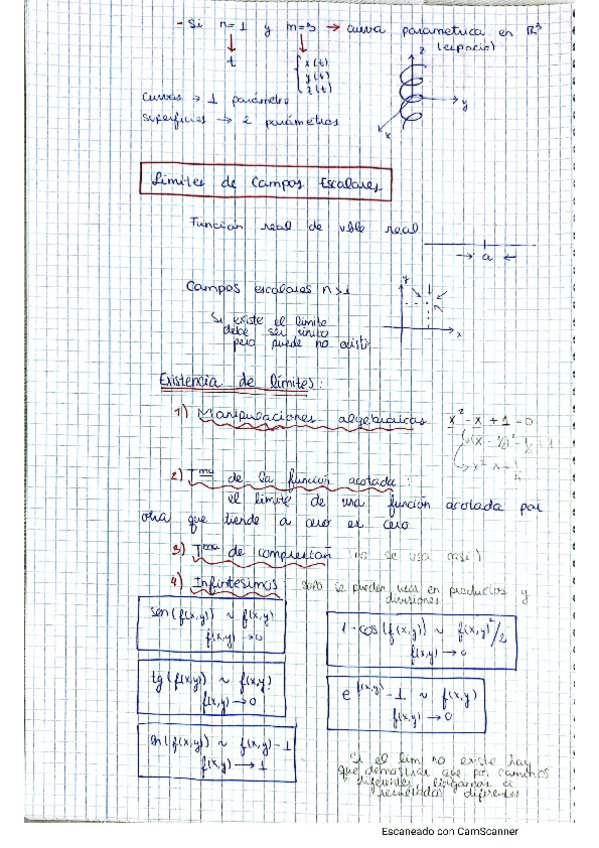 - Si n=1 y m=3 → curva parametrica en R³
(espacio)
t
x(t)
y(t)
z(t)
curvas → 1 parámetro
superficies → 2 parámetros
z
y
x
Límites de Campos Escalares
Función real de vble real
→ a ←
Campos escalares n>1
y
x
Si existe el límite
debe ser único
pero puede no existir
Existencia de límites:
1) Manipulaciones algebraicas x² - x + 1 = 0
2) Tma de la función acotada:
el límite de una función acotada por
otra que tiende a cero es cero
3) Tma de compresión (no se usa casi)
4) Infinitésimos: solo se pueden usar en productos y
divisiones
sen(f(x,y)) ~ f(x,y)
f(x,y) → 0
1 - cos(f(x,y)) ~ f(x,y)²/2
f(x,y) → 0
tg(f(x,y)) ~ f(x,y)
f(x,y) → 0
e^f(x,y) - 1 ~ f(x,y)
f(x,y) → 0
ln(f(x,y)) ~ f(x,y) - 1
f(x,y) → 1
Si el lim no existe hay
que demostrar que por caminos
diferentes llegamos a
resultados diferentes
Escaneado con CamScanner